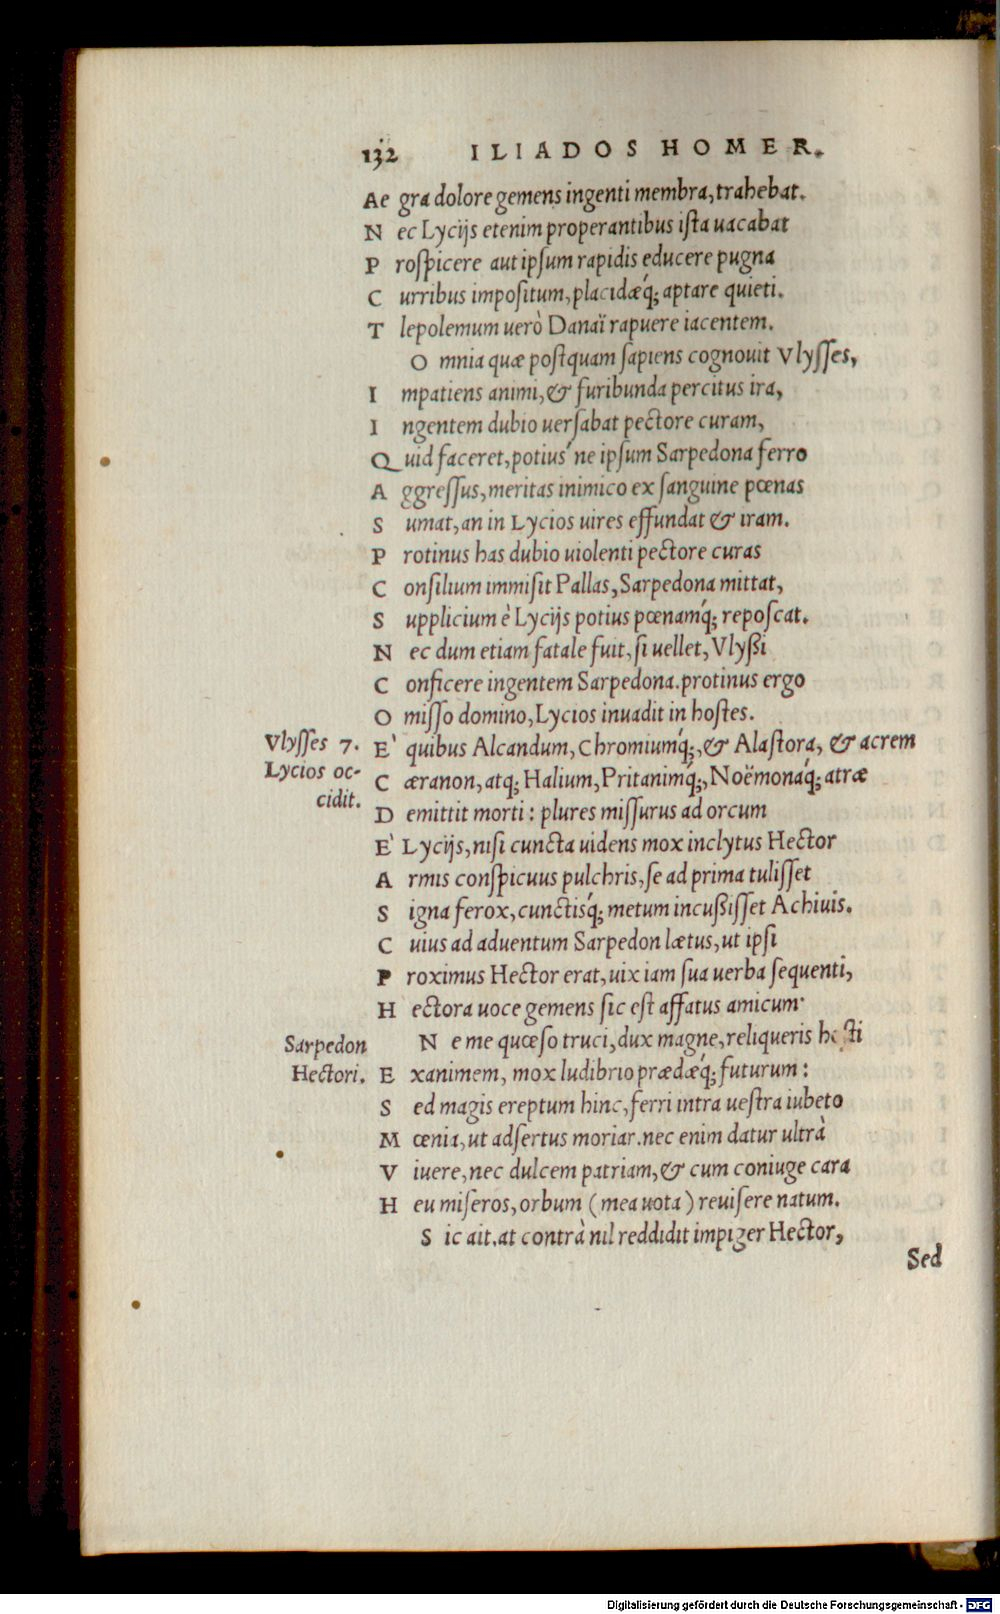 132 ILIADOS HOMER.
Aegra dolore gemens ingenti membra, trahebat.
Nec Lycijs etenim properantibus ista uacabat
Prospicere aut ipsum rapidis educere pugna
Curribus impositum, placidæq́; aptare quieti.
Tlepolemum uerò Danaï rapuere iacentem.
Omnia quæ postquam sapiens cognouit Vlysses,
Impatiens animi, & furibunda percitus ira,
Ingentem dubio uersabat pectore curam,
Quid faceret, potius´ne ipsum Sarpedona ferro
Aggressus, meritas inimico ex sanguine pœnas
Sumat, an in Lycios uires effundat & iram.
Protinus has dubio uiolenti pectore curas
Consilium immisit Pallas, Sarpedona mittat,
Supplicium è Lycijs potius pœnamq́; reposcat.
Nec dum etiam fatale fuit, si uellet, Vlyßi
Conficere ingentem Sarpedona. protinus ergo
Omisso domino, Lycios inuadit in hostes.
Vlysses 7.
Lycios oc-
cidit.
E` quibus Alcandum, Chromiumq́;, & Alastora, & acrem
Cæranon, atq; Halium, Pritanimq́;, Noëmonaq́; atræ
Demittit morti: plures missurus ad orcum
E` Lycijs, nisi cuncta uidens mox inclytus Hector
Armis conspicuus pulchris, se ad prima tulisset
Signa ferox, cunctisq́; metum incußisset Achiuis.
Cuius ad aduentum Sarpedon lætus, ut ipsi
Proximus Hector erat, uix iam sua uerba sequenti,
Hectora uoce gemens sic est affatus amicum·
Sarpedon
Hectori.
Ne me quæso truci, dux magne, reliqueris hosti
Exanimem, mox ludibrio prædæq́; futurum:
Sed magis ereptum hinc, ferri intra uestra iubeto
Mœnia, ut adsertus moriar. nec enim datur ultrà
Viuere, nec dulcem patriam, & cum coniuge cara
Heu miseros, orbum (mea uota) reuisere natum.
Sic ait. at contrà nil reddidit impiger Hector,
Sed
Digitalisierung gefördert durch die Deutsche Forschungsgemeinschaft - DFG